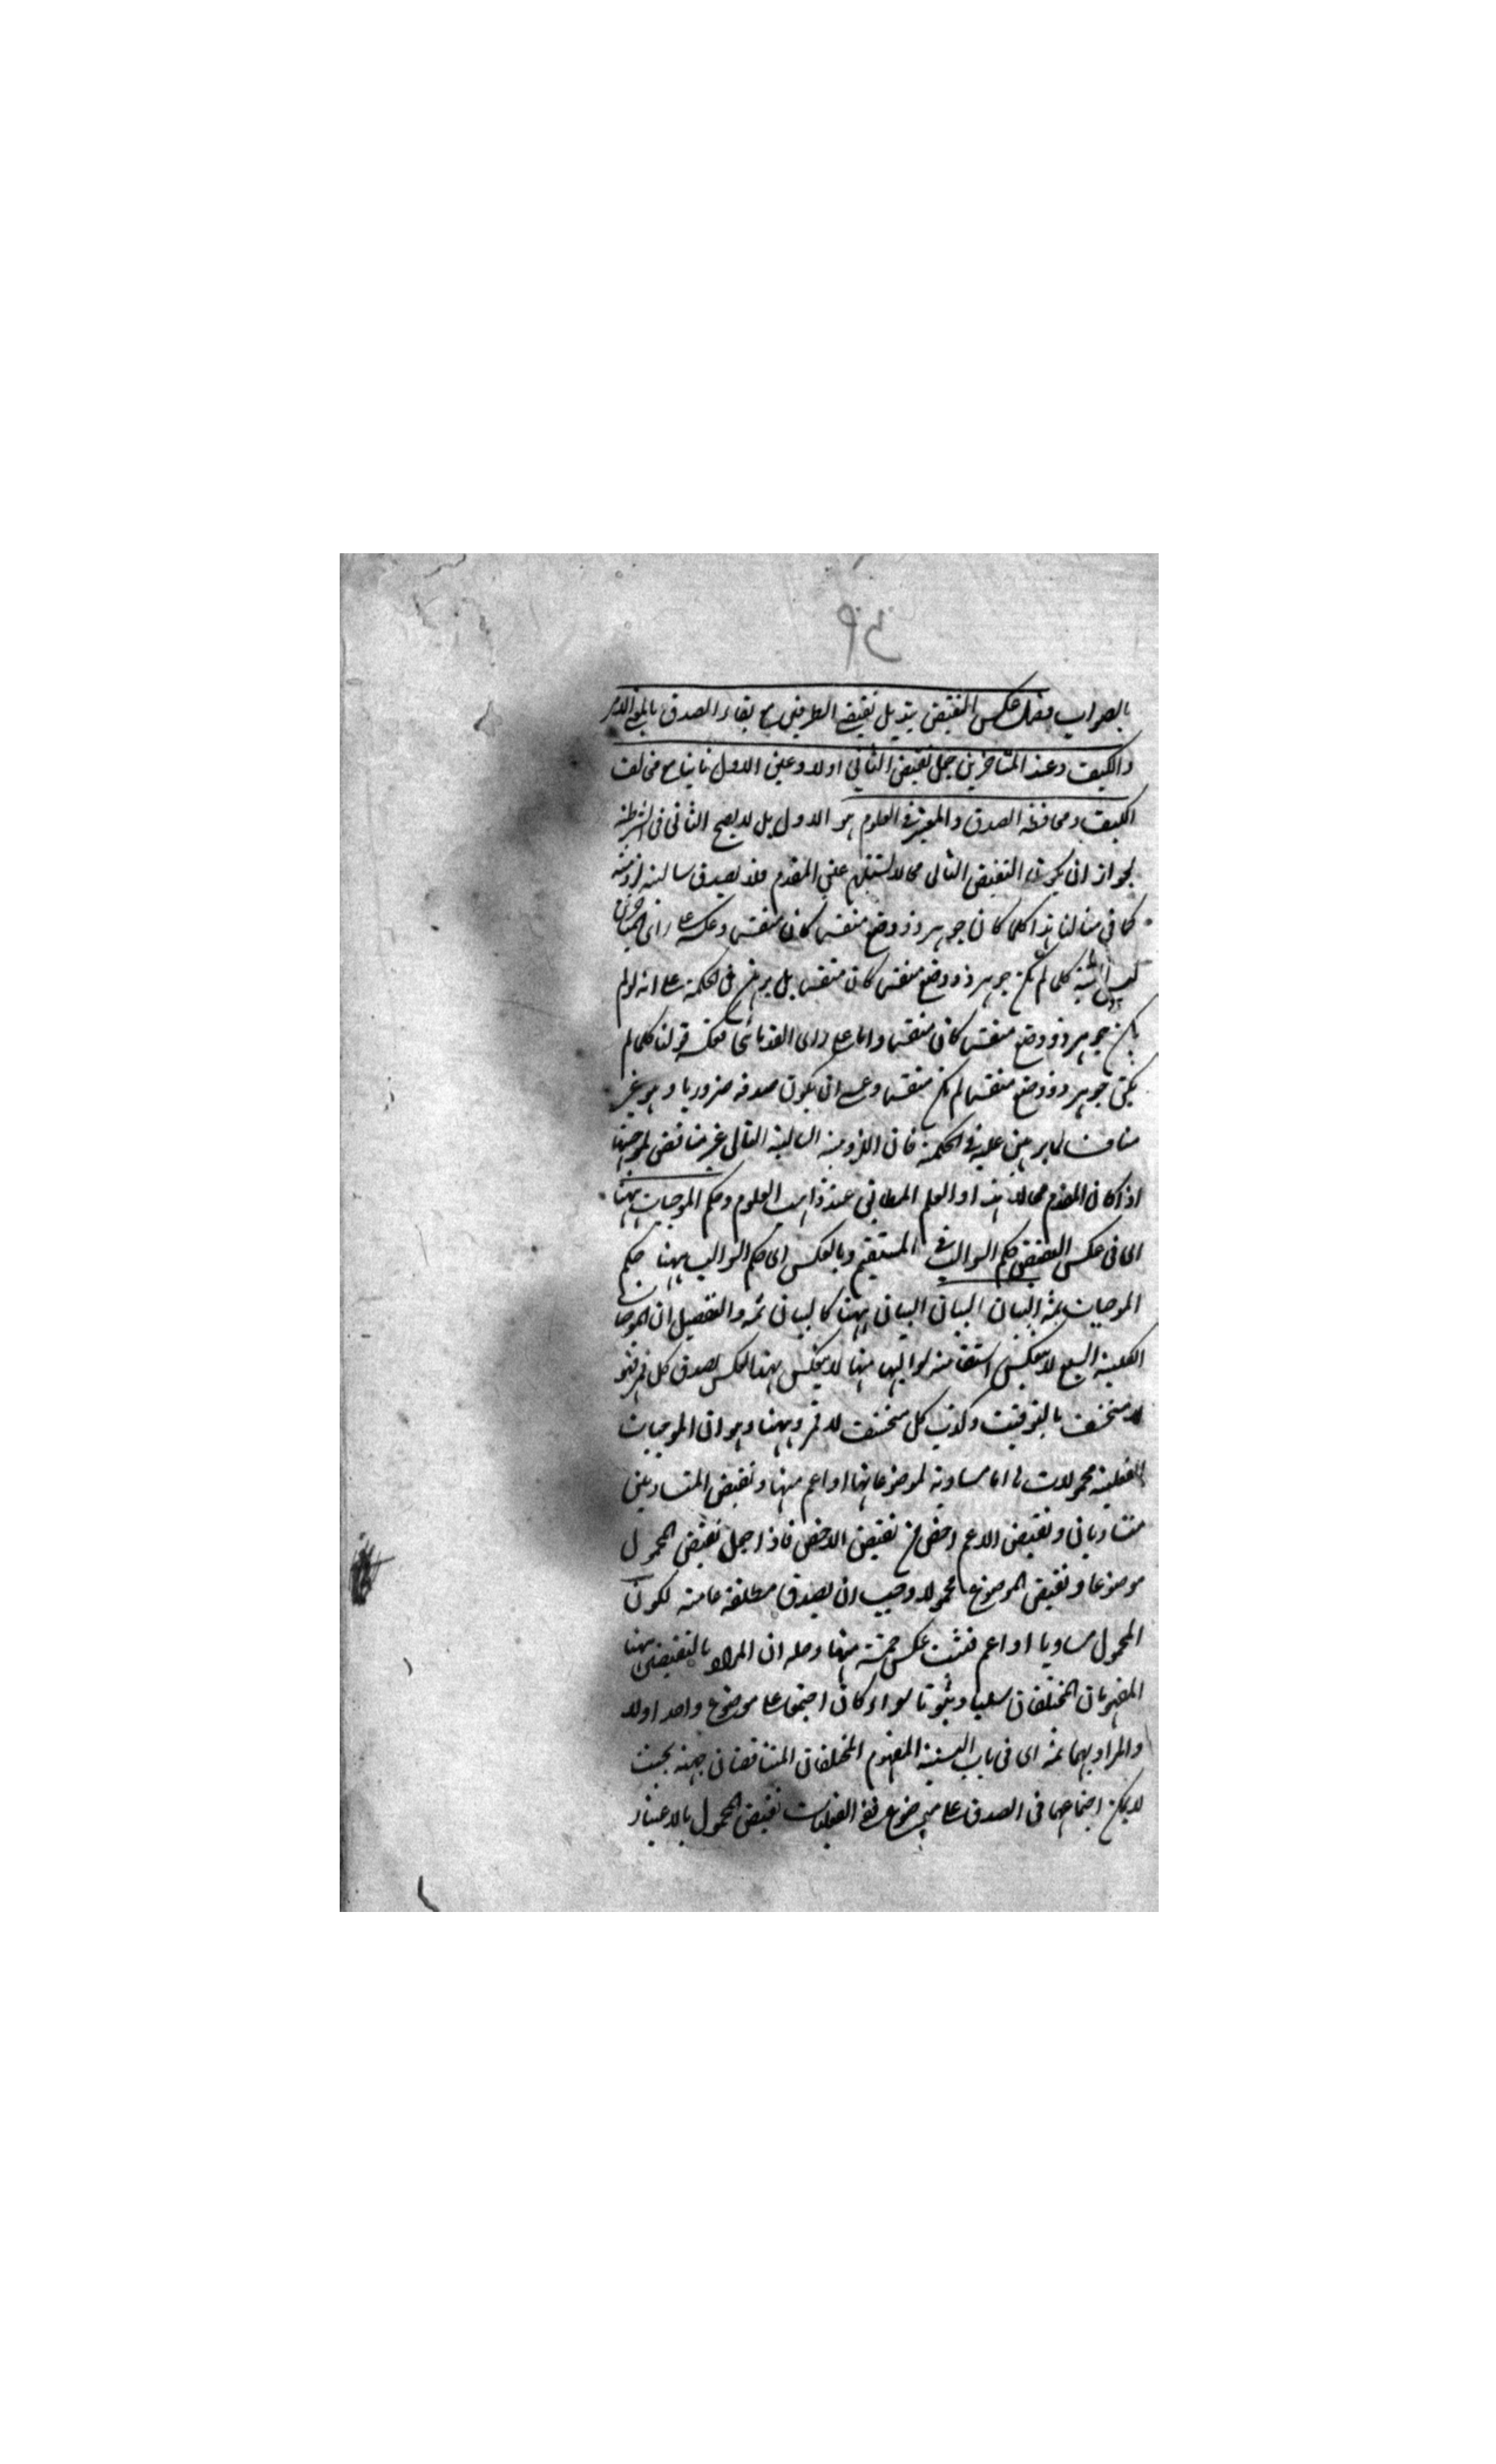 بالصواب فصل عكس النقيض تبديل نقيضي الطرفين مع بقاء الصدق
والكيف وعند المتاخرين جعل نقيض الثاني اولا وعين الاول ثانيا مع مخالفة
الكيف ومحافظة الصدق والمعتبر في العلوم هو الاول بل لا يصح الثاني في الشرطية
لجواز ان يكون النقيض التالي محالا يستلزم عين المقدم فلا يصدق سالبته لزومية
كما في مثالنا هذا كلما كان جوهر ذو وضع منقسم كان منقسم وعكسه على راى المتاخرين
ليس البتة كلما لم يكن جوهر ذو وضع منقسم كان منقسم بل برهن في الحكمة على انه لو لم
يكن جوهر ذو وضع منقسم كان منقسم واما على راى القدماء فعكسه قولنا كلما لم
يكن جوهر ذو وضع منقسم لم يكن منقسما وعسى ان يكون صدقه ضروريا وهو غير
مناف لما برهن عليه في الحكمة فان اللزومية السالبة التالي غير مناقض لموجبتها
اذا كان المقدم محالا هذا والعلم المطابق عند واهب العلوم وحكم الموجبات ههنا
اى في عكس النقيض حكم السوالب في المستقيم وبالعكس اى حكم السوالب ههنا حكم
الموجبات ثمه البيان البيان البيان ههنا كالبيان ثمه والتفصيل ان الموجبات
الكلية السبع لا ينعكس استقامة سوالبها ههنا لا ينعكس بهذا العكس لصدق كل قمر فهو
لا منخسف بالتوقيت وكذب كل منخسف لا قمر وههنا وهو ان الموجبات
الفعلية محمولات اما مساوية لموضوعاتها او اعم منها ونقيض المتساويين
متساويان ونقيض الاعم اخص من نقيض الاخص فاذا جعل نقيض المحمول
موضوعا ونقيض الموضوع محمولا وجب ان يصدق مطلقة عامة لكون
المحمول مساويا او اعم فثبت عكس خمسة منها وحله ان المراد بالنقيضين ههنا
المفهومان المختلفان سلبا وثبوتا سواء كان اجتمعا على موضوع واحد اولا
والمراد بهما ثمه اى في باب النسبة المفهوم المختلفان المتناقضان جهة بحيث
لا يمكن اجتماعهما في الصدق على موضوع ففي الفعليات نقيض المحمول بالاعتبار